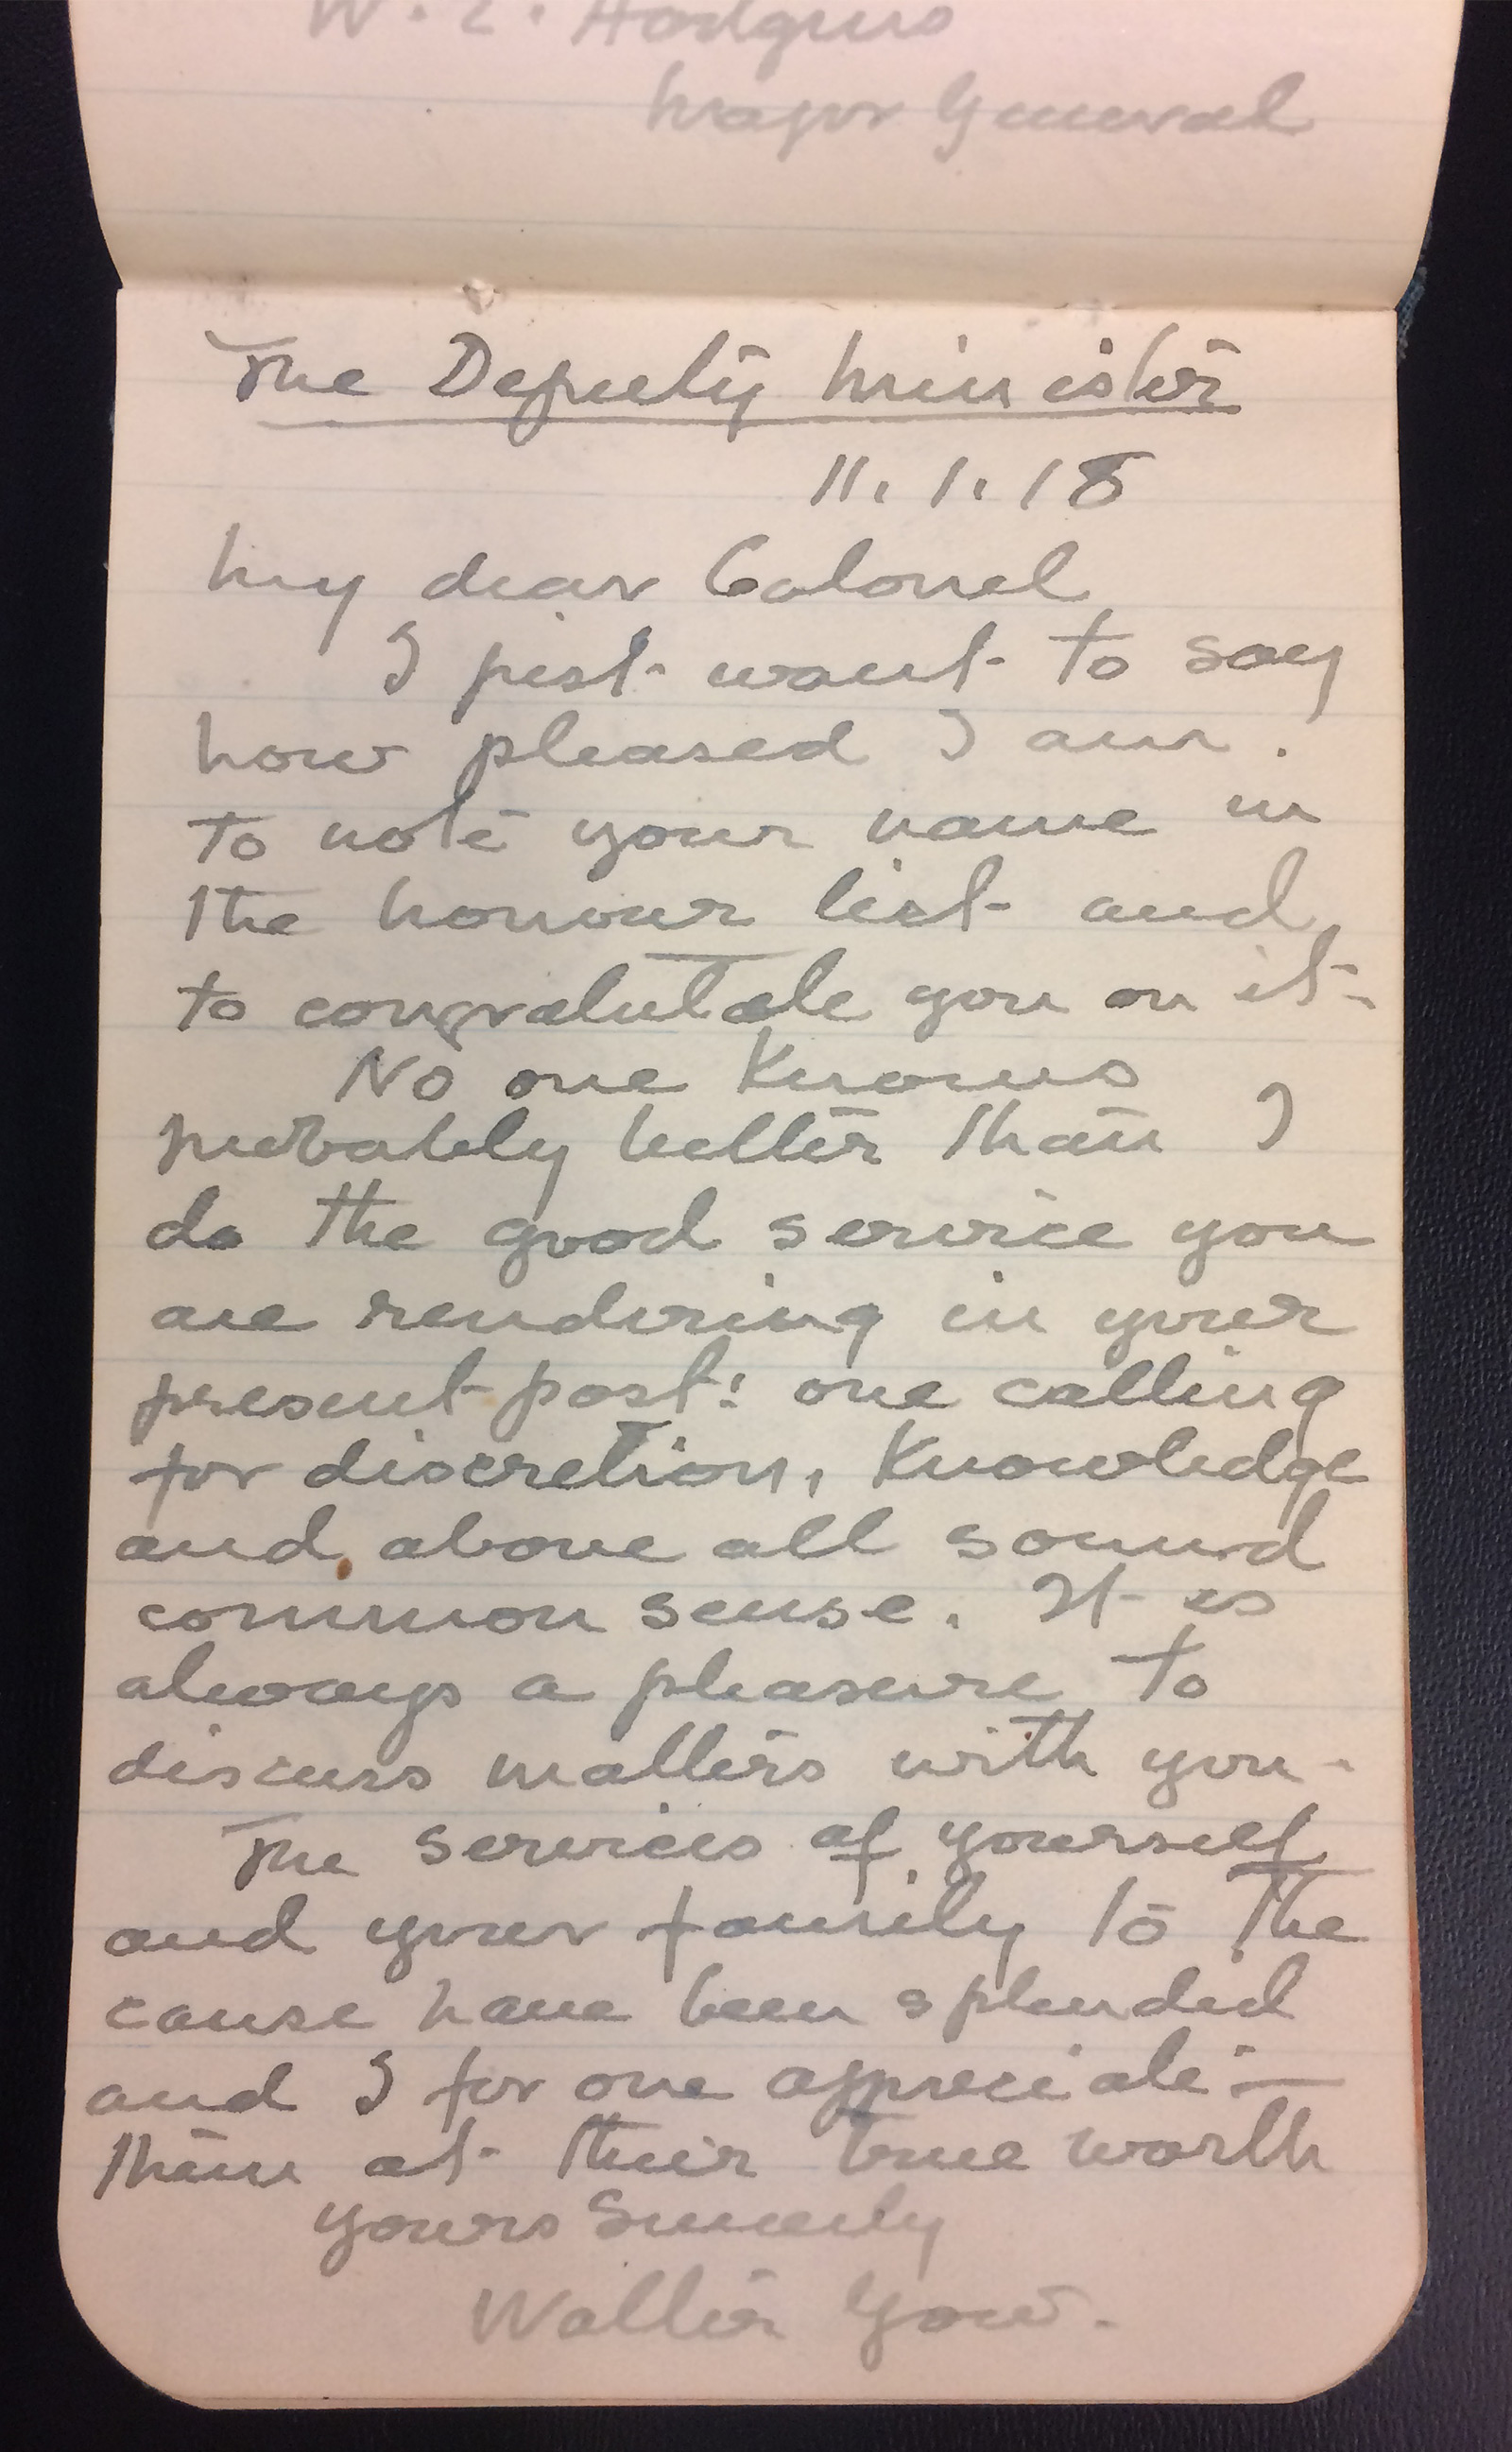 W. E. Hodgins
Major General
The Deputy Minister
11.1.18
My dear Colonel
I just want to say
how pleased I am.
to note your name in
the honour list and
to congratulate you on it.
No one knows
probably better than I
do the good service you
are rendering in your
present post: one calling
for discretion, knowledge
and above all sound
common sense. It is
always a pleasure to
discuss matters with you.
The services of yourself
and your family to the
cause have been splendid
and I for one appreciate
them at their true worth
Yours Sincerely
Walter Gow.